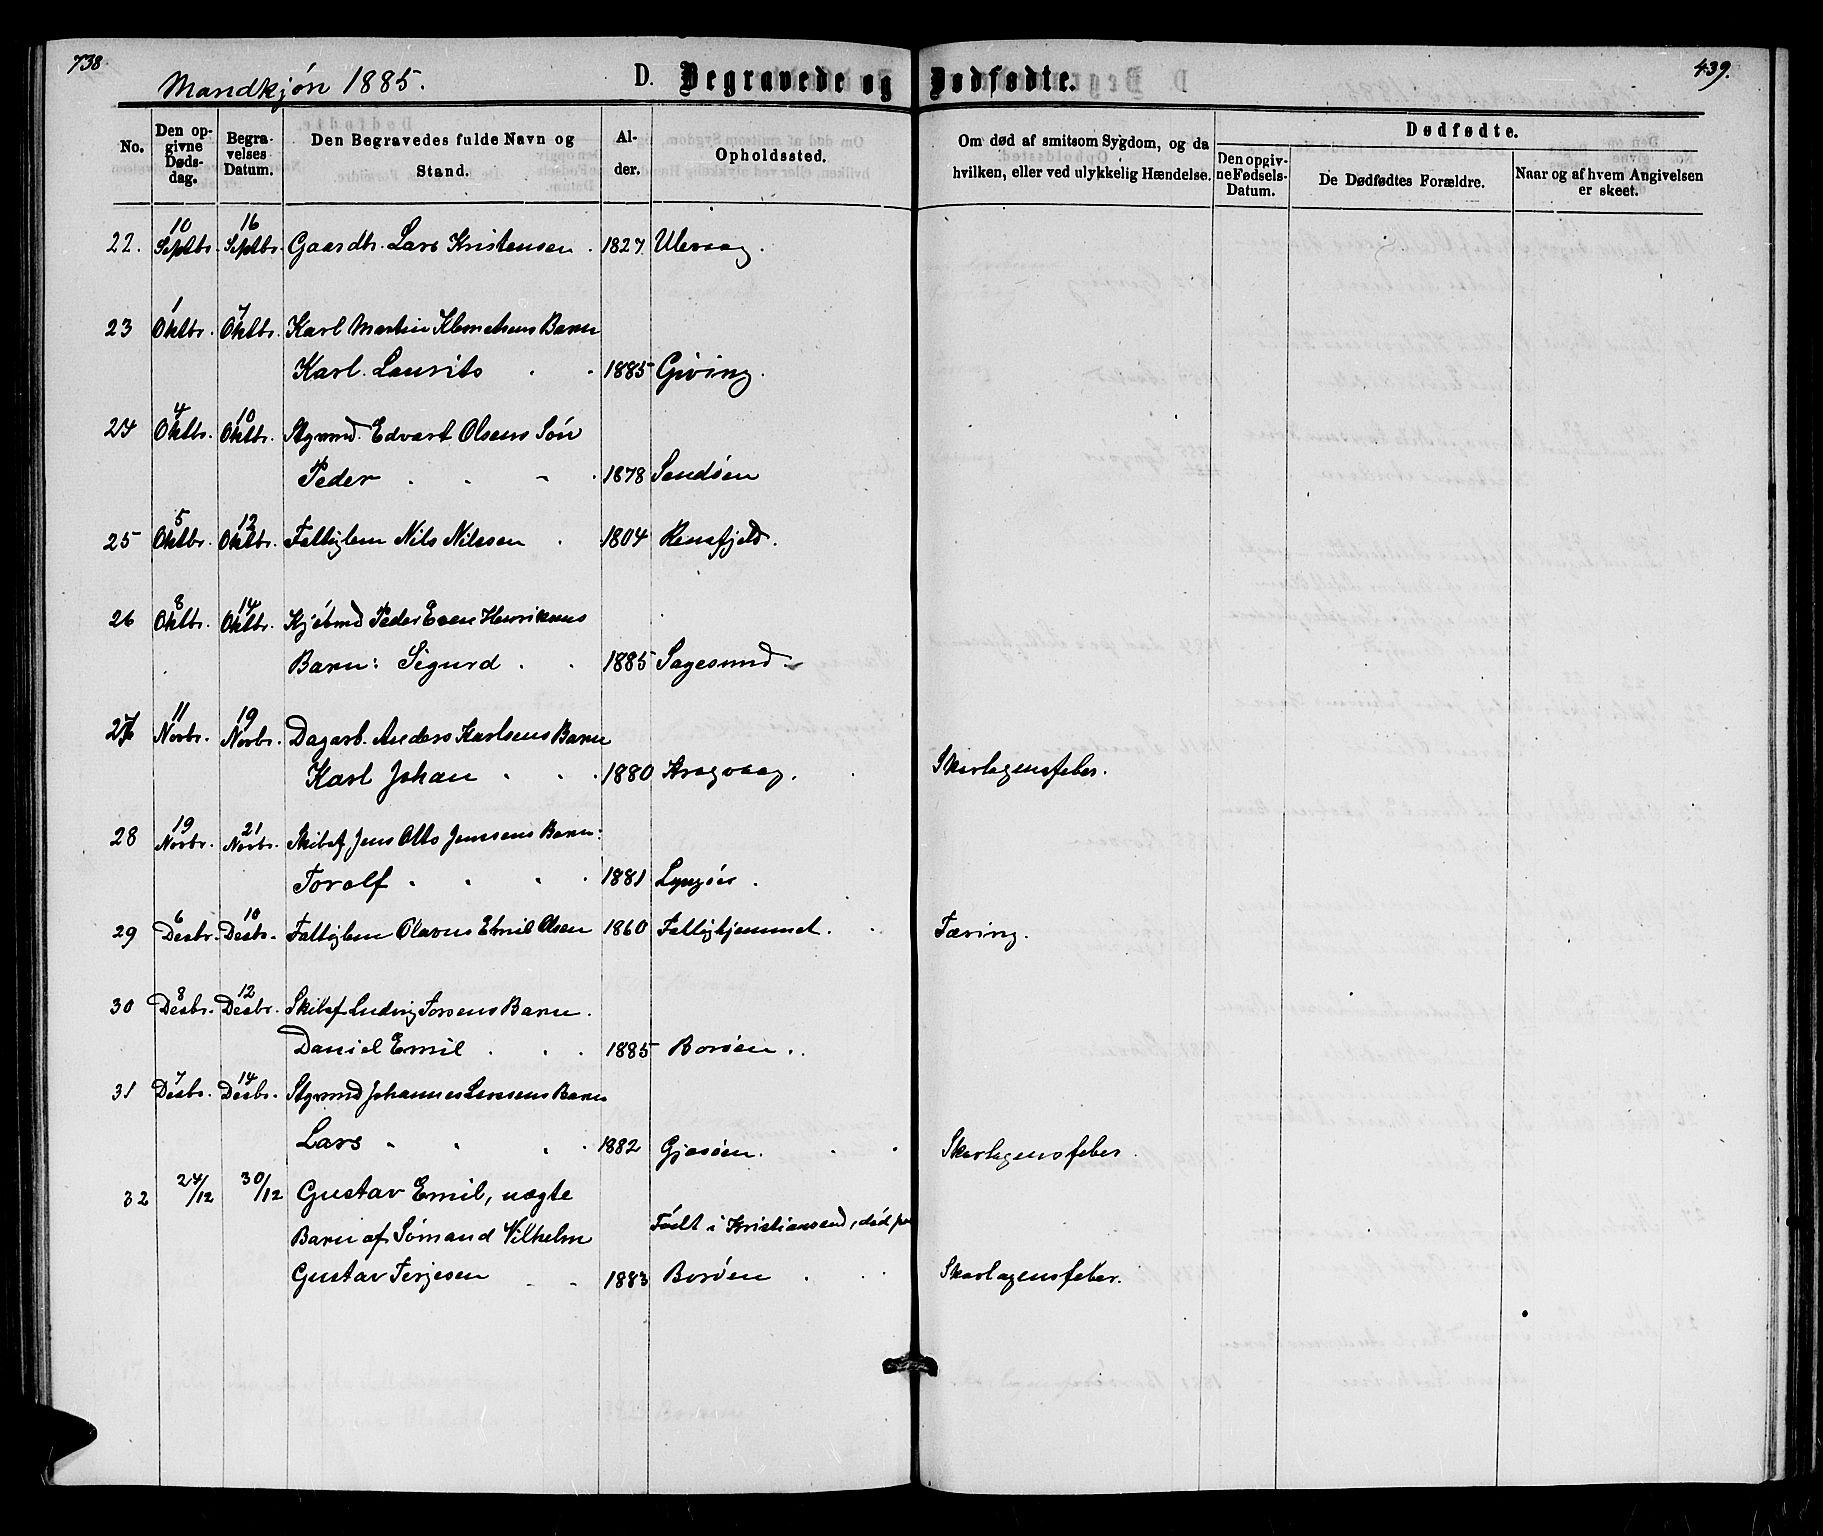 738
439.
Mandkjøn 1885.
D. Begravede og Dødfødte.
No.
Den opgivne Dødsdag.
Begravelses Datum.
Den Begravedes fulde Navn og Stand.
Alder.
Opholdssted.
Om død af smitsom Sygdom, og da hvilken, eller ved ulykkelig Hændelse.
Dødfødte.
Den opgivne Fødsels-Datum.
De Dødfødtes Forældre.
Naar og af hvem Angivelsen er skeet.
22. 10 Septbr. 16 Septbr. Gaardbr. Lars Kristensen . 1827. Ulevaag.
23 1 Oktbr. 7 Oktbr. Karl Martin Klemetsens Barn
Karl Laurits . . 1885 Giving.
24 4 Oktbr. 10 Oktbr. Styrmd. Edvart Olsens Søn
Peder . . . 1878 Sandøen
25 5 Oktbr. 12 Oktbr. Fattiglem Nils Nilssen . 1804 Rensfjeld.
26 8 Oktbr. 14 Oktbr. Kjøbmd Peder Even Henriksens
Barn: Sigurd . . 1885 Sagesund
27 11 Novbr. 19 Novbr. Dagarb. Anders Karlsens Barn
Karl Johan . . . 1880 Kragvaag. . Skarlagensfeber.
28 19 Novbr. 21 Novbr. Skibsf Jens Otto Jenssens Barn:
Toralf . . . 1881 Lyngøer .
29 6 Desbr. 10 Desbr. Fattiglem Olavus Emil Olsen 1860 Fattighjemmet. . Tæring.
30 8 Desbr. 12 Desbr. Skibsf Ludvig Torsens Barn.
Daniel Emil . . . 1885 Borøen . .
31 7 Desbr. 14 Desbr. Styrmd Johannes Larsens Barn
Lars . . . 1882 Gjesøen. . . Skarlagensfeber.
32 24/12 30/12 Gustav Emil, uægte
Barn af Sømand Vilhelm Født i Kristiansand, død paa
Gustav Terjesen . . 1883 Borøen . . Skarlagensfeber.